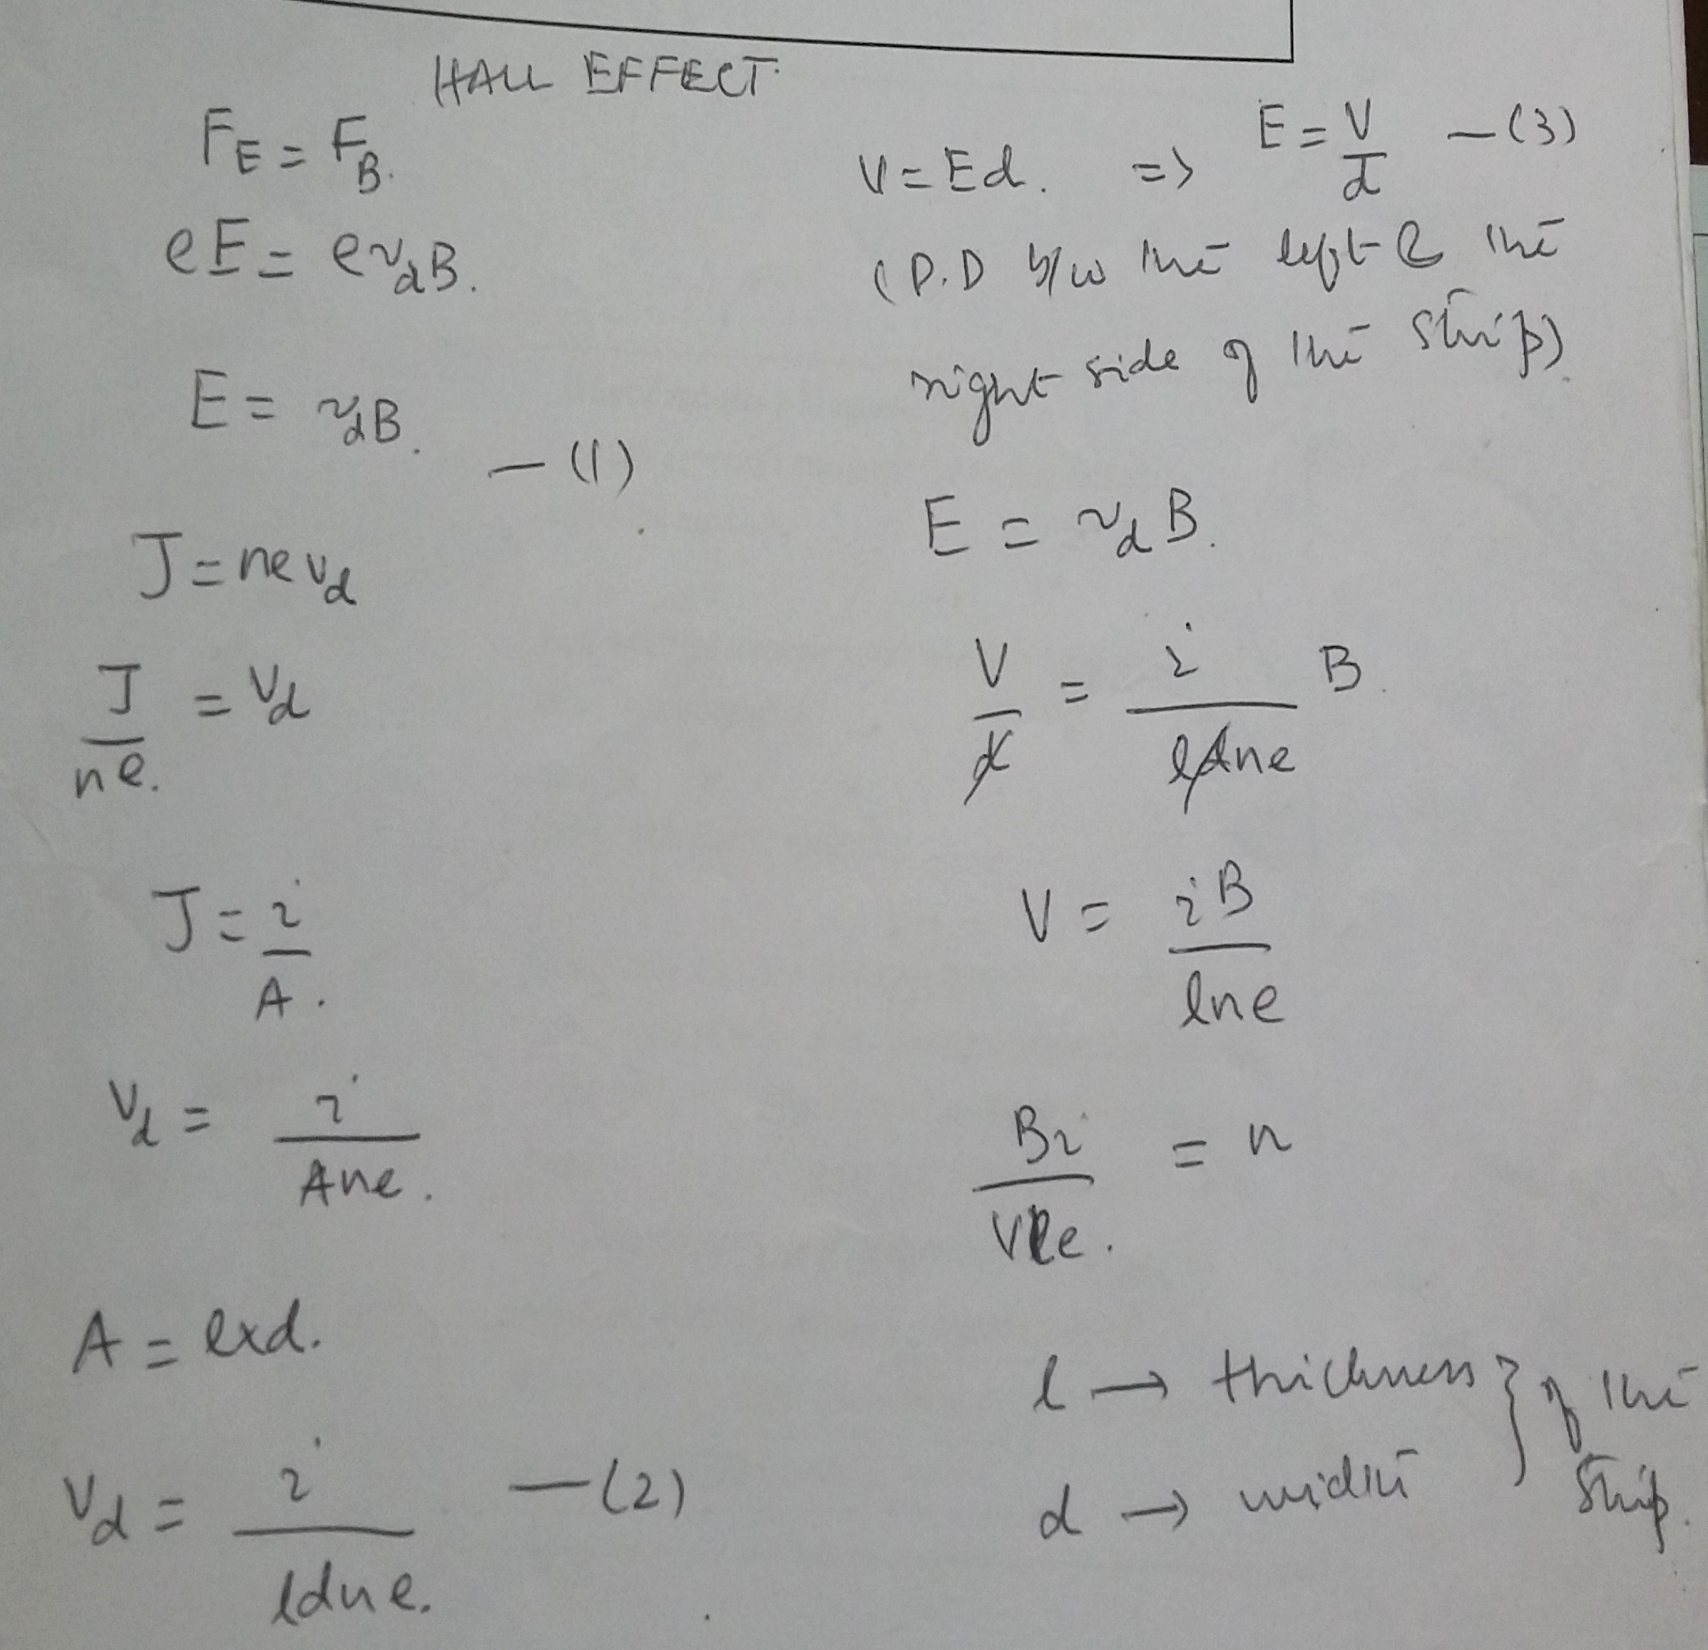 HALL EFFECT
F_E = F_B.
eE = ev_dB.
E = v_dB. — (1)
J = nev_d
J/ne. = v_d
J = i/A.
v_d = i/Ane.
A = lxd.
v_d = i/ldne. — (2)
V = Ed. => E = V/d — (3)
(P.D b/w the left & the
right side of the strip).
E = v_d B.
V/d = i/ldne B.
V = iB/lne
Bi/Vle. = n
l → thickness } of the
d → width strip.